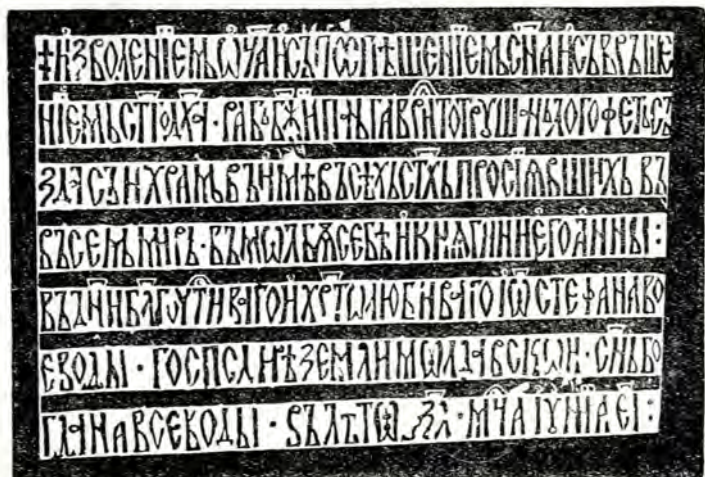 ‡ ИЗВОЛЕНІЕМЬ ѠЧ҃А И СЪ ПОСПѢШЕНІЕМЬ СН҃А И СЪВРЪШЕ
НІЕМЬ СТ҃ГО ДХ҃А · РАБЬ БЖ҃ІИ ПАНЬ ГАВРИ ТОТРУШАНЬ ЛОГОФЕТЬ СЪ
ЗДА СЪИ ХРАМЬ ВЪ ИМѢ ВЪСѢХЬ СТ҃ХЬ ПРОСІѦВШИХЬ ВЪ
ВЪСЕМЬ МИРЬ · ВЪ МѠЛБѪ СЕБѢ И КНѦГИНИ ЕГО АННЫ :
ВЪ ДНИ БЛ҃ГОЧТИВАГО И ХР҃ТѠЛЮБИВАГО ІѠ СТЕФАНА ВО
ЕВОДЫ · ГОСПОДАРѢ ЗЕМЛИ МѠЛДАВСКѠИ · СН҃Ь БО
ГДАНА ВОЕВОДЫ · ВЪ ЛѢТѠ ҂ЗЛ · МЦ҃А ІУНІА ЕІ :